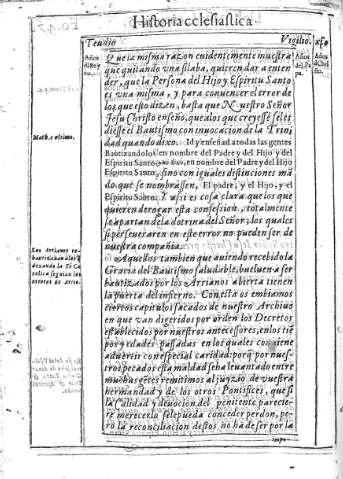 Historia ecclesiastica
Teudio
Vigilio.
Que la misma razon euidentemente muestra
que quitando vna silaba, quieren dar a enten
der, que la Persona del Hijo y Espiritu Santo
es vna misma, y para conuencer el error de
los que esto dizen, basta que Nuestro Señor
Jesu Christo enseño, que a los que creyessẽ se les
diesse el Bautismo con inuocacion de la Trini
dad quando dixo: Id y enseñad a todas las gentes
Bautizandolos en nombre del Padre y del Hijo y del
Espiritu Santo y no dixo, en nombre del Padre y del Hijo
Espiritu Santo, sino con iguales distinciones mã
dò, que se nombrassen, El padre, y el Hijo, y el
Espiritu Santo. Y assi es cosa clara que los que
quieren derogar esta confession, totalmente
se apartan de la dotrina del Señor, los quales
si perseueraren en este error no pueden ser de
nuestra compañia.
Aquellos tambien que auiendo recebido la
Gracia del Bautismo saludable, bueluen a ser
bautizados por los Arrianos abierta tienen
la puerta del infierno. Con esta os embiamos
ciertos capitulos sacados de nuestro Archiuo
en que van digeridos por orden los Decretos
establecidos por nuestros antecessores, en los tiẽ
pos y edades passadas en los quales conuiene
aduertir con especial caridad: porq̃ por nues-
tros pecados esta maldad se ha leuantado entre
muchos estes remitimos al juyzio de vuestra
hermandad y de los otros Pontifices, que si
la Calidad y deuocion del penitente parecie-
re merecerlo se le pueda conceder perdon, pe-
ro la reconciliacion destos no ha de ser por la
Math. vltimo.
Los Arrianos re-
bautizauan a los q̃
dexando la Fè Ca-
tolica seguian los
errores de Arrio.